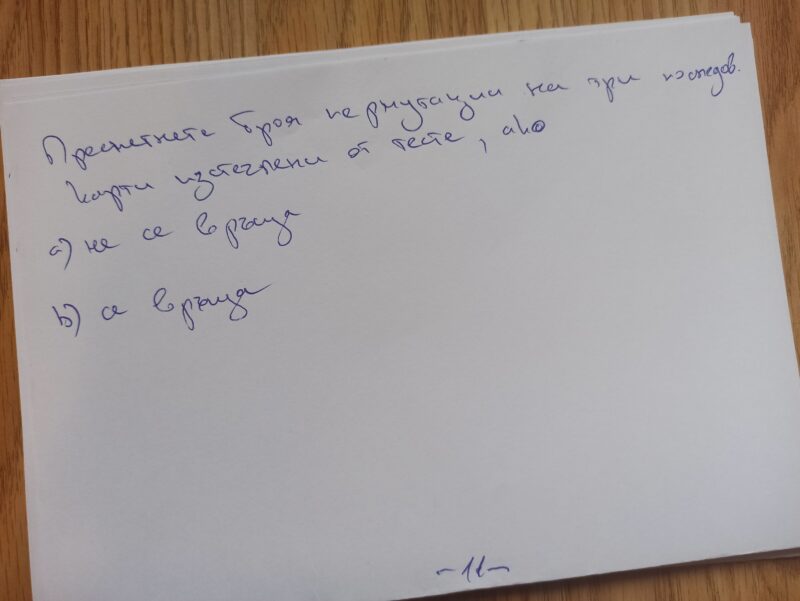 Пресметнете броя пермутации на три последов.
карти изтеглени от тесте, ако
а) не се връща
b) се връща
-11-